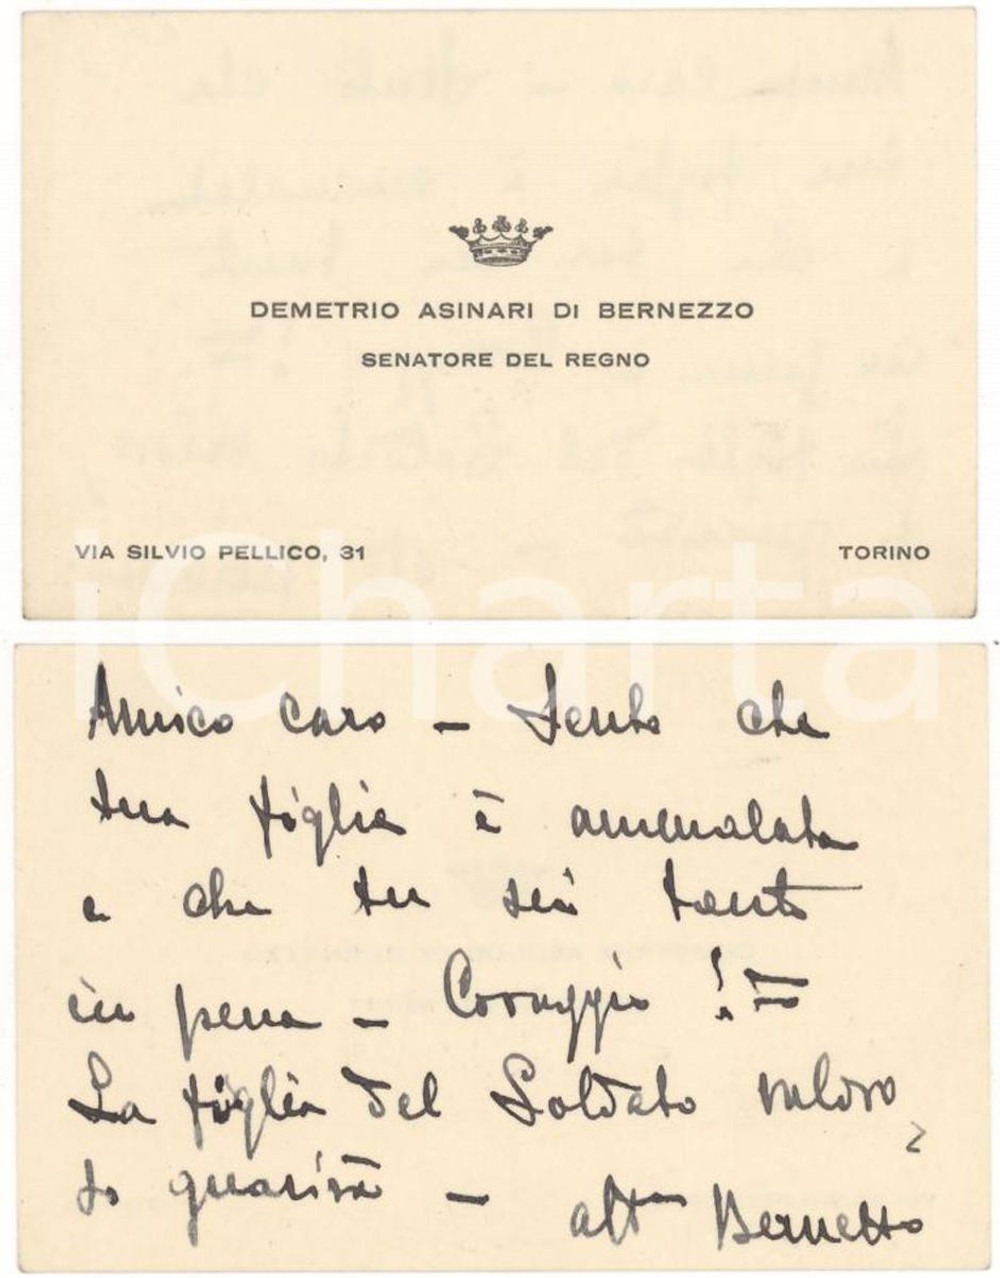 DEMETRIO ASINARI DI BERNEZZO
SENATORE DEL REGNO
VIA SILVIO PELLICO, 31
TORINO
iCharta
Amico caro – Sento che
tua figlia è ammalata
e che tu sei tanto
in pena – Coraggio! =
La figlia del Soldato valoro
so guarirà – aff.mo Bernezzo